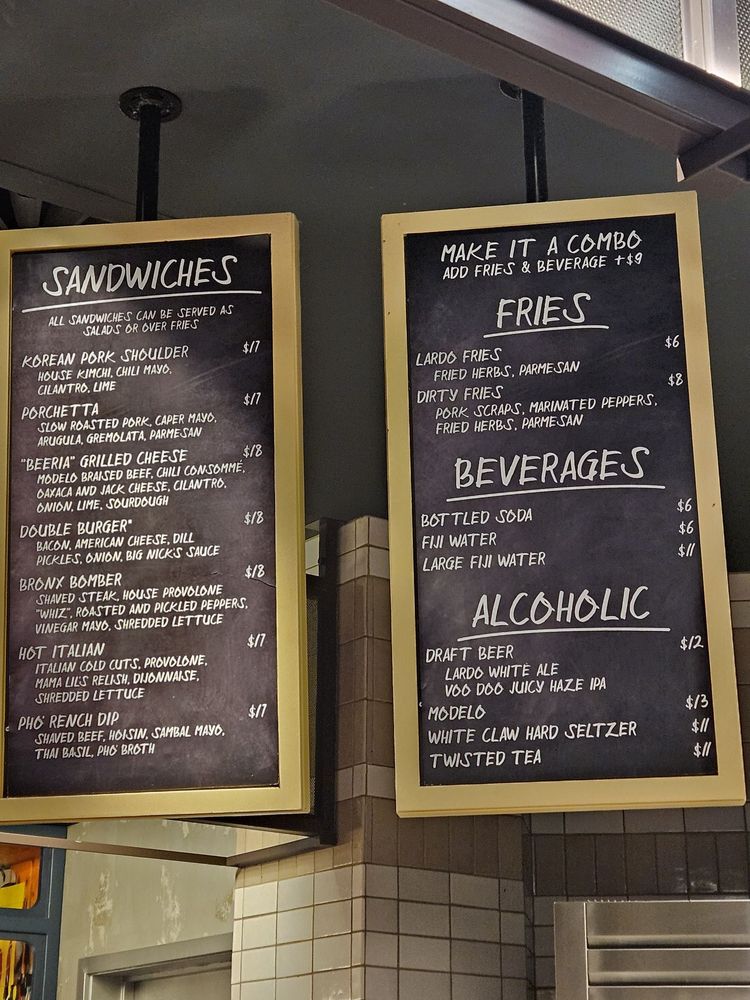 SANDWICHES
ALL SANDWICHES CAN BE SERVED AS
SALADS OR OVER FRIES
KOREAN PORK SHOULDER $17
HOUSE KIMCHI, CHILI MAYO,
CILANTRO, LIME
PORCHETTA $17
SLOW ROASTED PORK, CAPER MAYO,
ARUGULA, GREMOLATA, PARMESAN
"BEERIA" GRILLED CHEESE $18
MODELO BRAISED BEEF, CHILI CONSOMMÉ,
OAXACA AND JACK CHEESE, CILANTRO,
ONION, LIME, SOURDOUGH
DOUBLE BURGER* $18
BACON, AMERICAN CHEESE, DILL
PICKLES, ONION, BIG NICK'S SAUCE
BRONX BOMBER $18
SHAVED STEAK, HOUSE PROVOLONE
"WHIZ", ROASTED AND PICKLED PEPPERS,
VINEGAR MAYO, SHREDDED LETTUCE
HOT ITALIAN $17
ITALIAN COLD CUTS, PROVOLONE,
MAMA LIL'S RELISH, DIJONNAISE,
SHREDDED LETTUCE
PHO' RENCH DIP $17
SHAVED BEEF, HOISIN, SAMBAL MAYO,
THAI BASIL, PHO BROTH
MAKE IT A COMBO
ADD FRIES & BEVERAGE +$9
FRIES
LARDO FRIES $6
FRIED HERBS, PARMESAN
DIRTY FRIES $8
PORK SCRAPS, MARINATED PEPPERS,
FRIED HERBS, PARMESAN
BEVERAGES
BOTTLED SODA $6
FIJI WATER $6
LARGE FIJI WATER $11
ALCOHOLIC
DRAFT BEER $12
LARDO WHITE ALE
VOO DOO JUICY HAZE IPA
MODELO $13
WHITE CLAW HARD SELTZER $11
TWISTED TEA $11